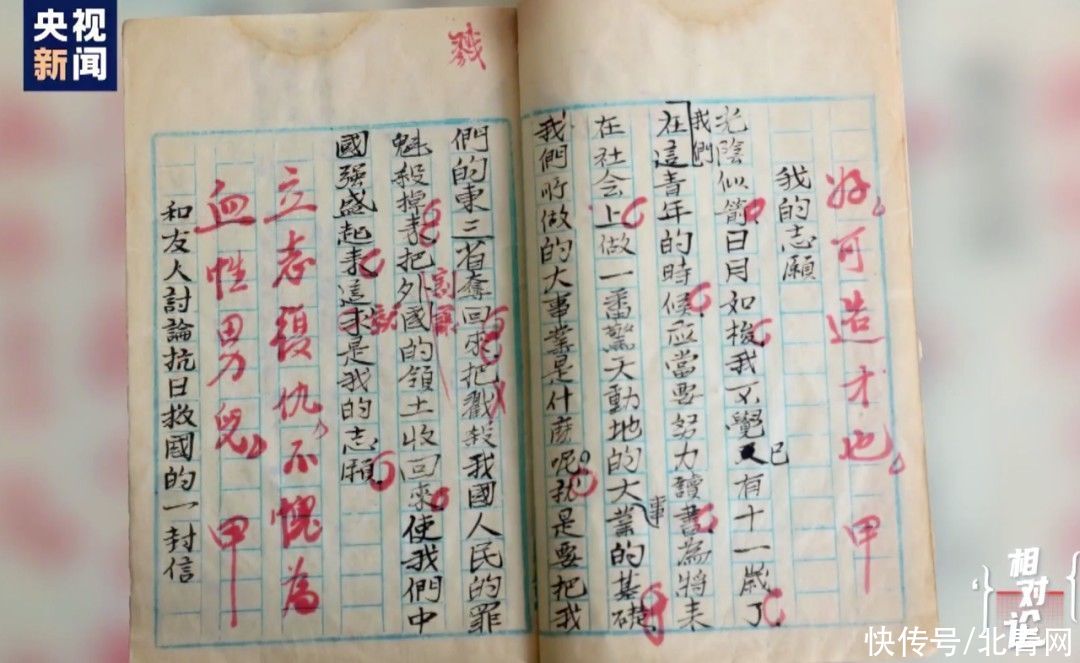 央视
新闻
好可造才也 甲
我的志願
光陰似箭日月如梭我不覺已有十一歲了
我們
在這青年的時候應當要努力讀書為將來
在社会上做一番驚天動地的大事業的基礎
我們所做的大事業是什麽呢就是要把我
戮
們的東三省奪回來把戳殺我國人民的罪
魁殺掉來把外國的領土收回來使我們中
國强盛起來這才是我的志願
立志復仇不愧為
血性男兒 甲
和友人討論抗日救國的一封信
相对论
快传号/北青网